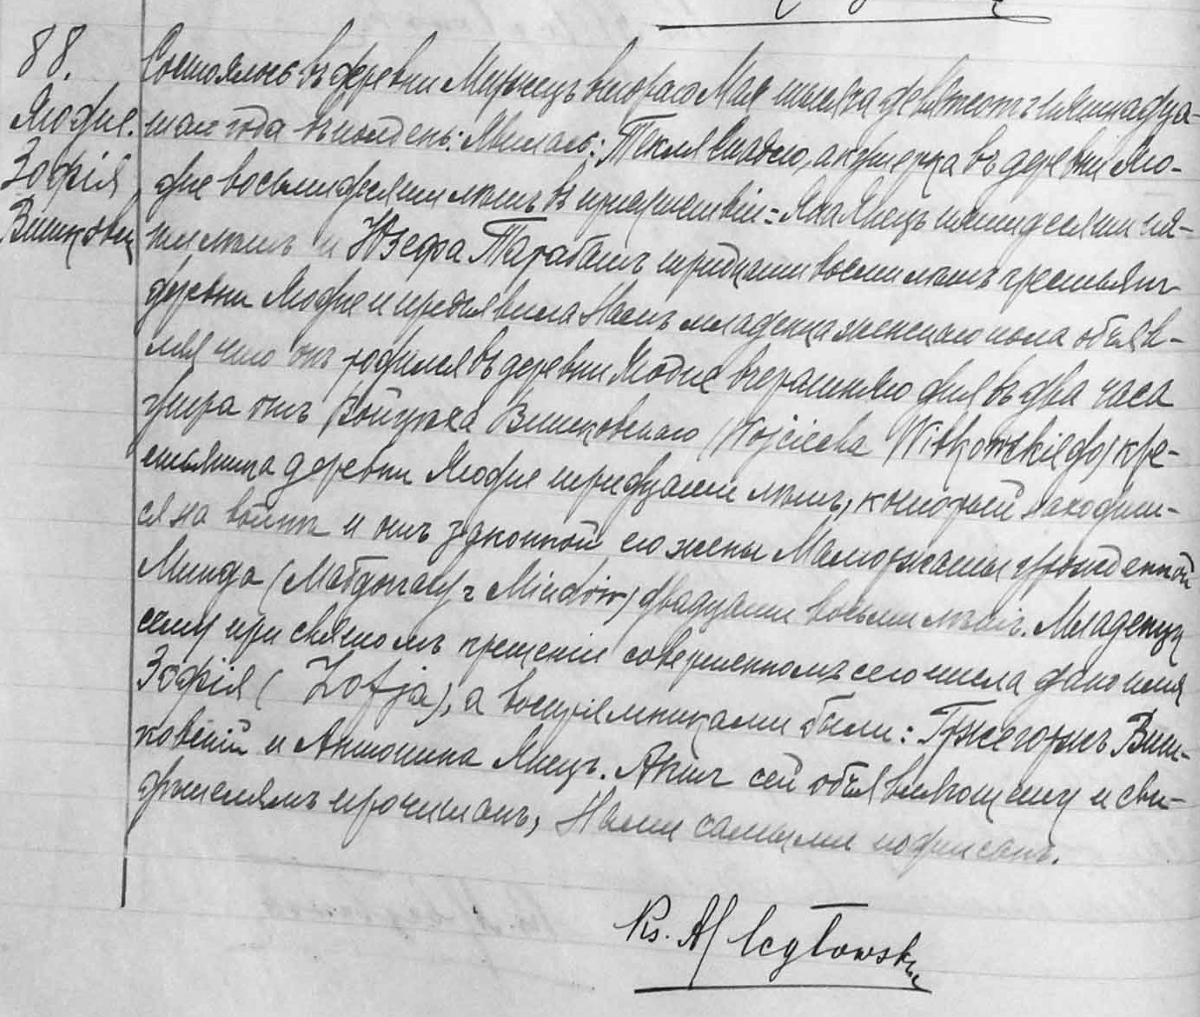 88.
Ягодне.
Зофія
Витковск
Состоялось въ деревни Мирженцъ второго Мая тысяча девятсотъ пятнадца-
таго года въ полдень: Явилась: Текля акушерка въ деревни Яго-
дне восьмидесяти лѣтъ въ присутствіи: Яна Янецъ пятидесяти пя-
ти лѣтъ и Юзефа Тарабашъ тридцати восьми лѣтъ крестьянъ
деревни Ягодне и предъявила Намъ младенца женскаго пола объяв-
ляя что онъ родился въ деревни Ягодне вчерашняго дня въ два часа
утра отъ Войцѣха Витковскаго (Wojciecha Witkowskiego) кре-
стьянина деревни Ягодне тридцати лѣтъ, который находит-
ся на войнѣ и отъ законной его жены Малгоржаты урожденной
Минда (Małgorzaty z Mindów) двадцати восьми лѣтъ. Младенцу
сему при святомъ крещеніи совершенномъ сего числа дано имя
Зофія (Zofja), а воспріемниками были: Гржегоржъ Вит-
ковскій и Антонина Янецъ. Актъ сей объявляющему и сви-
дѣтелямъ прочитанъ, Нами самыми подписанъ.
Ks. A